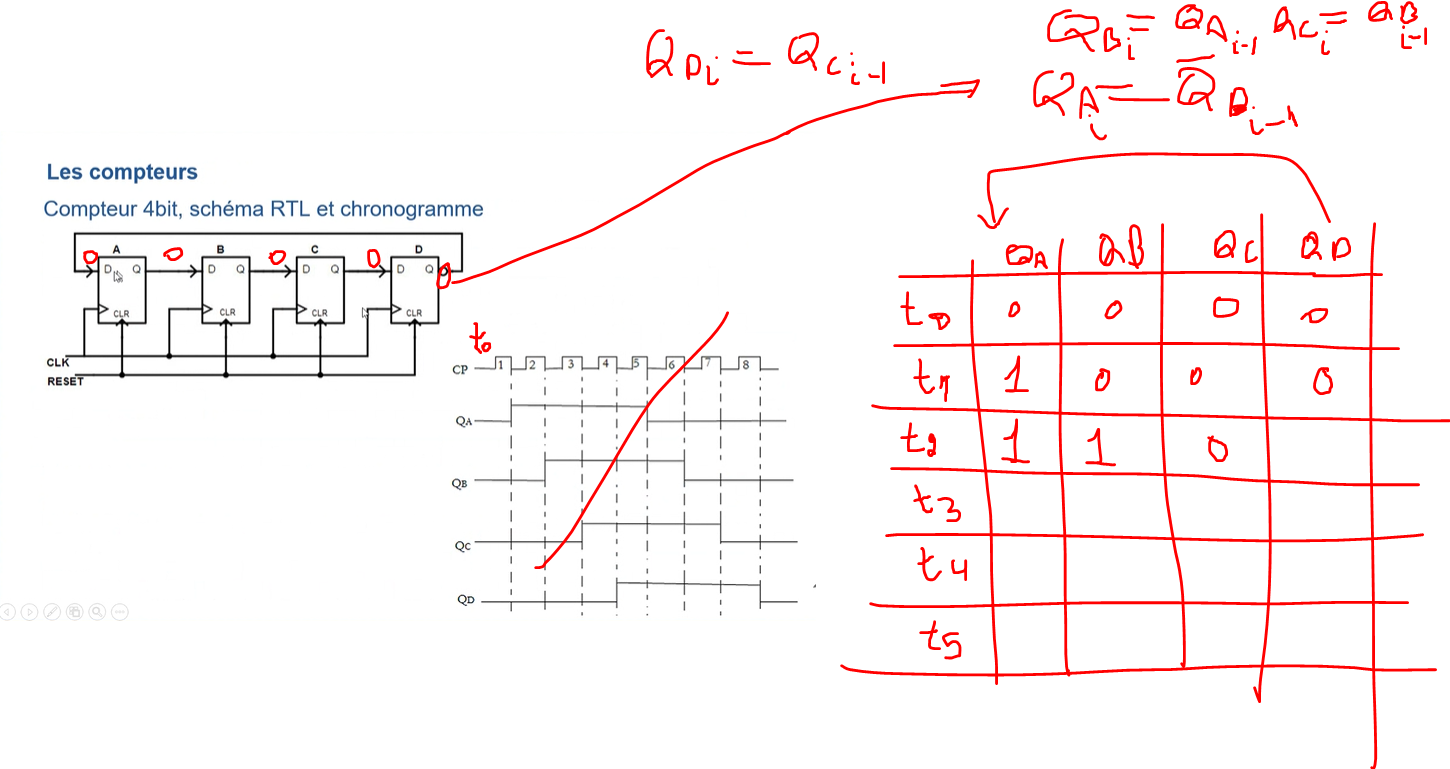 QDi = QCi-1
QBi = QAi-1 QCi = QBi-1
QAi = Q̅Di-1
Les compteurs
Compteur 4bit, schéma RTL et chronogramme
A B C D
0 0 0 0 0
D Q D Q D Q D Q
CLR CLR CLR CLR
CLK
RESET
t0
CP 1 2 3 4 5 6 7 8
QA
QB
QC
QD
QA QB QC QD
t0 0 0 0 0
t1 1 0 0 0
t2 1 1 0
t3
t4
t5